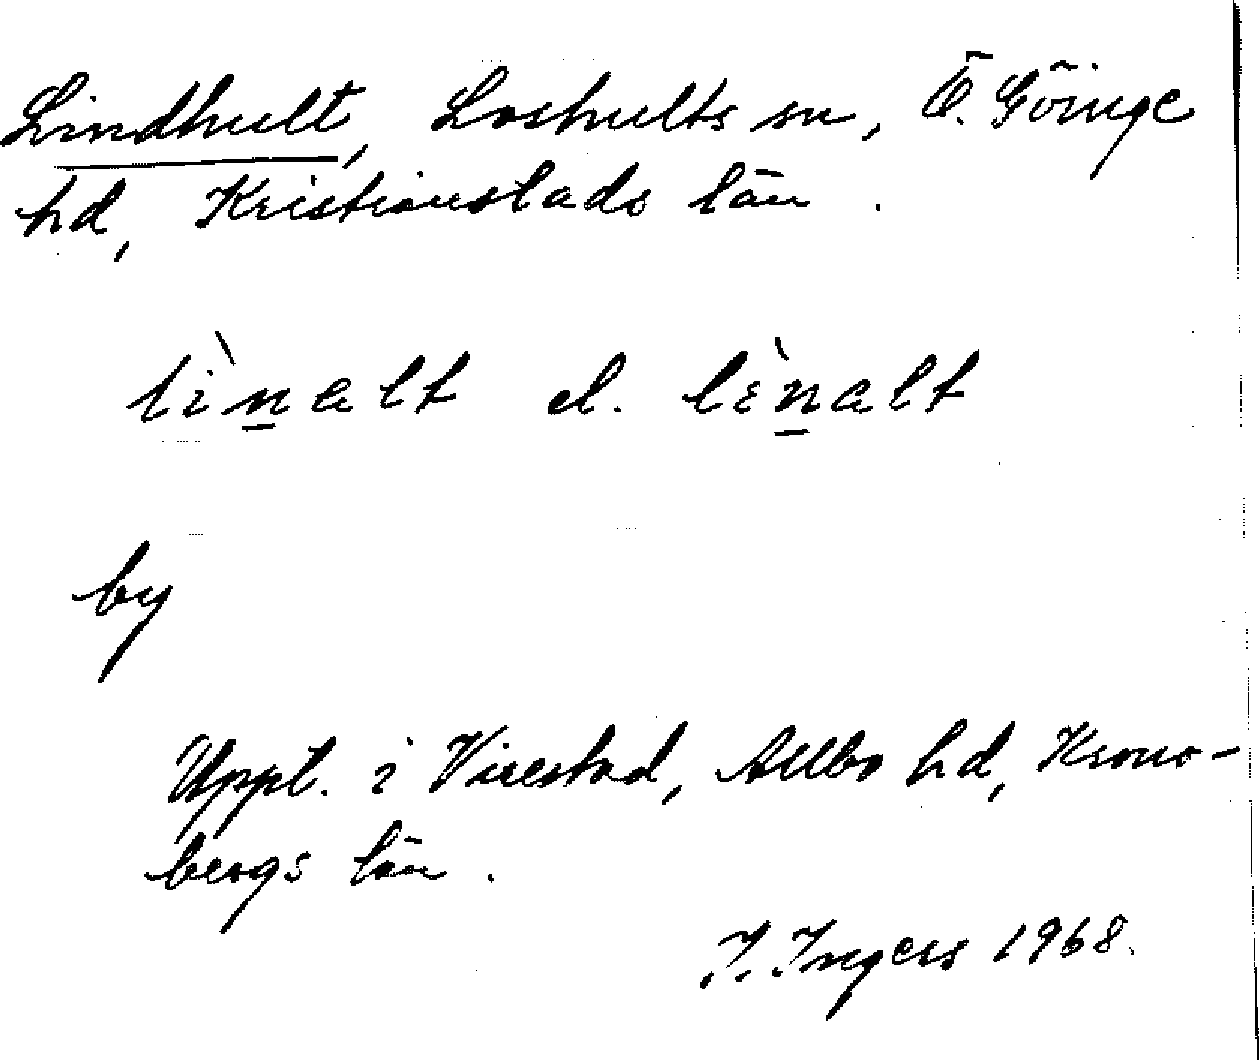 Lindhult, Loshults sn, Ö. Göinge
hd, Kristianstads län.
lìn̲alt el. lɛ̀n̲alt
by
Uppt. i Virestad, Allbo hd, Krono-
bergs län.
I. Ingers 1968.